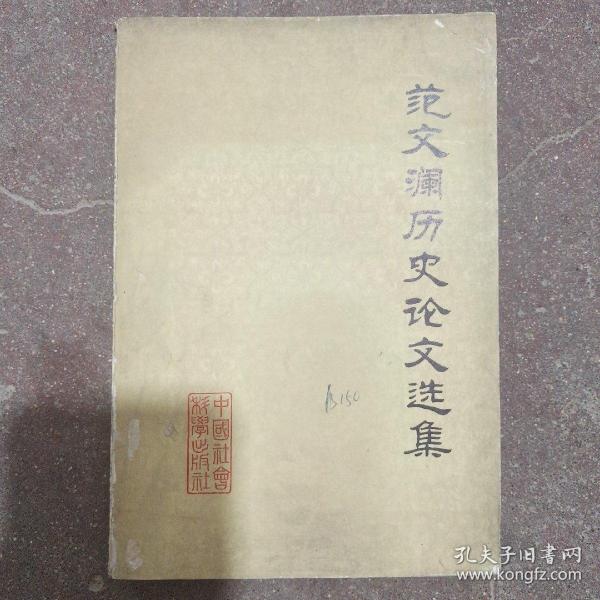 范文澜历史论文选集
中國社會
科學出版社
150
孔夫子旧书网
www.kongfz.com